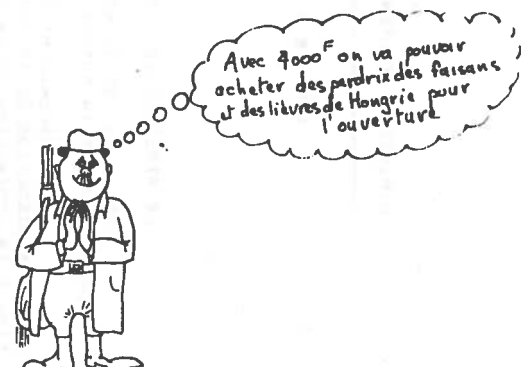 Avec 4000F on va pouvoir
acheter des pardrix des faisans
et des lièvres de Hongrie pour
l'ouverture